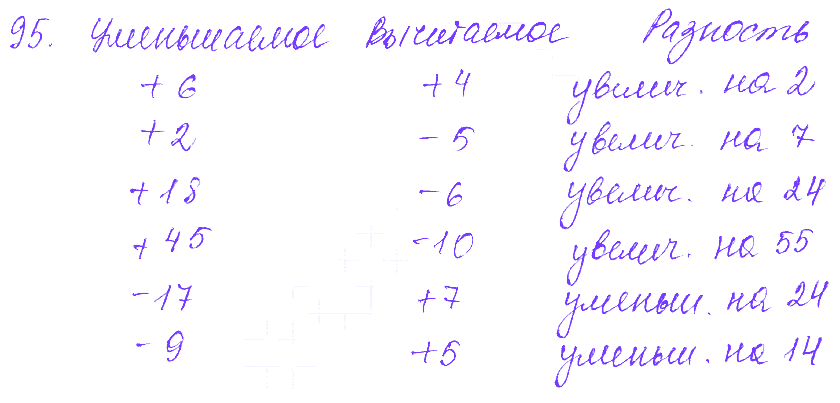 95. Уменьшаемое Вычитаемое Разность
+6 +4 увелич. на 2
+2 -5 увелич. на 7
+18 -6 увелич. на 24
+45 -10 увелич. на 55
-17 +7 уменьш. на 24
-9 +5 уменьш. на 14